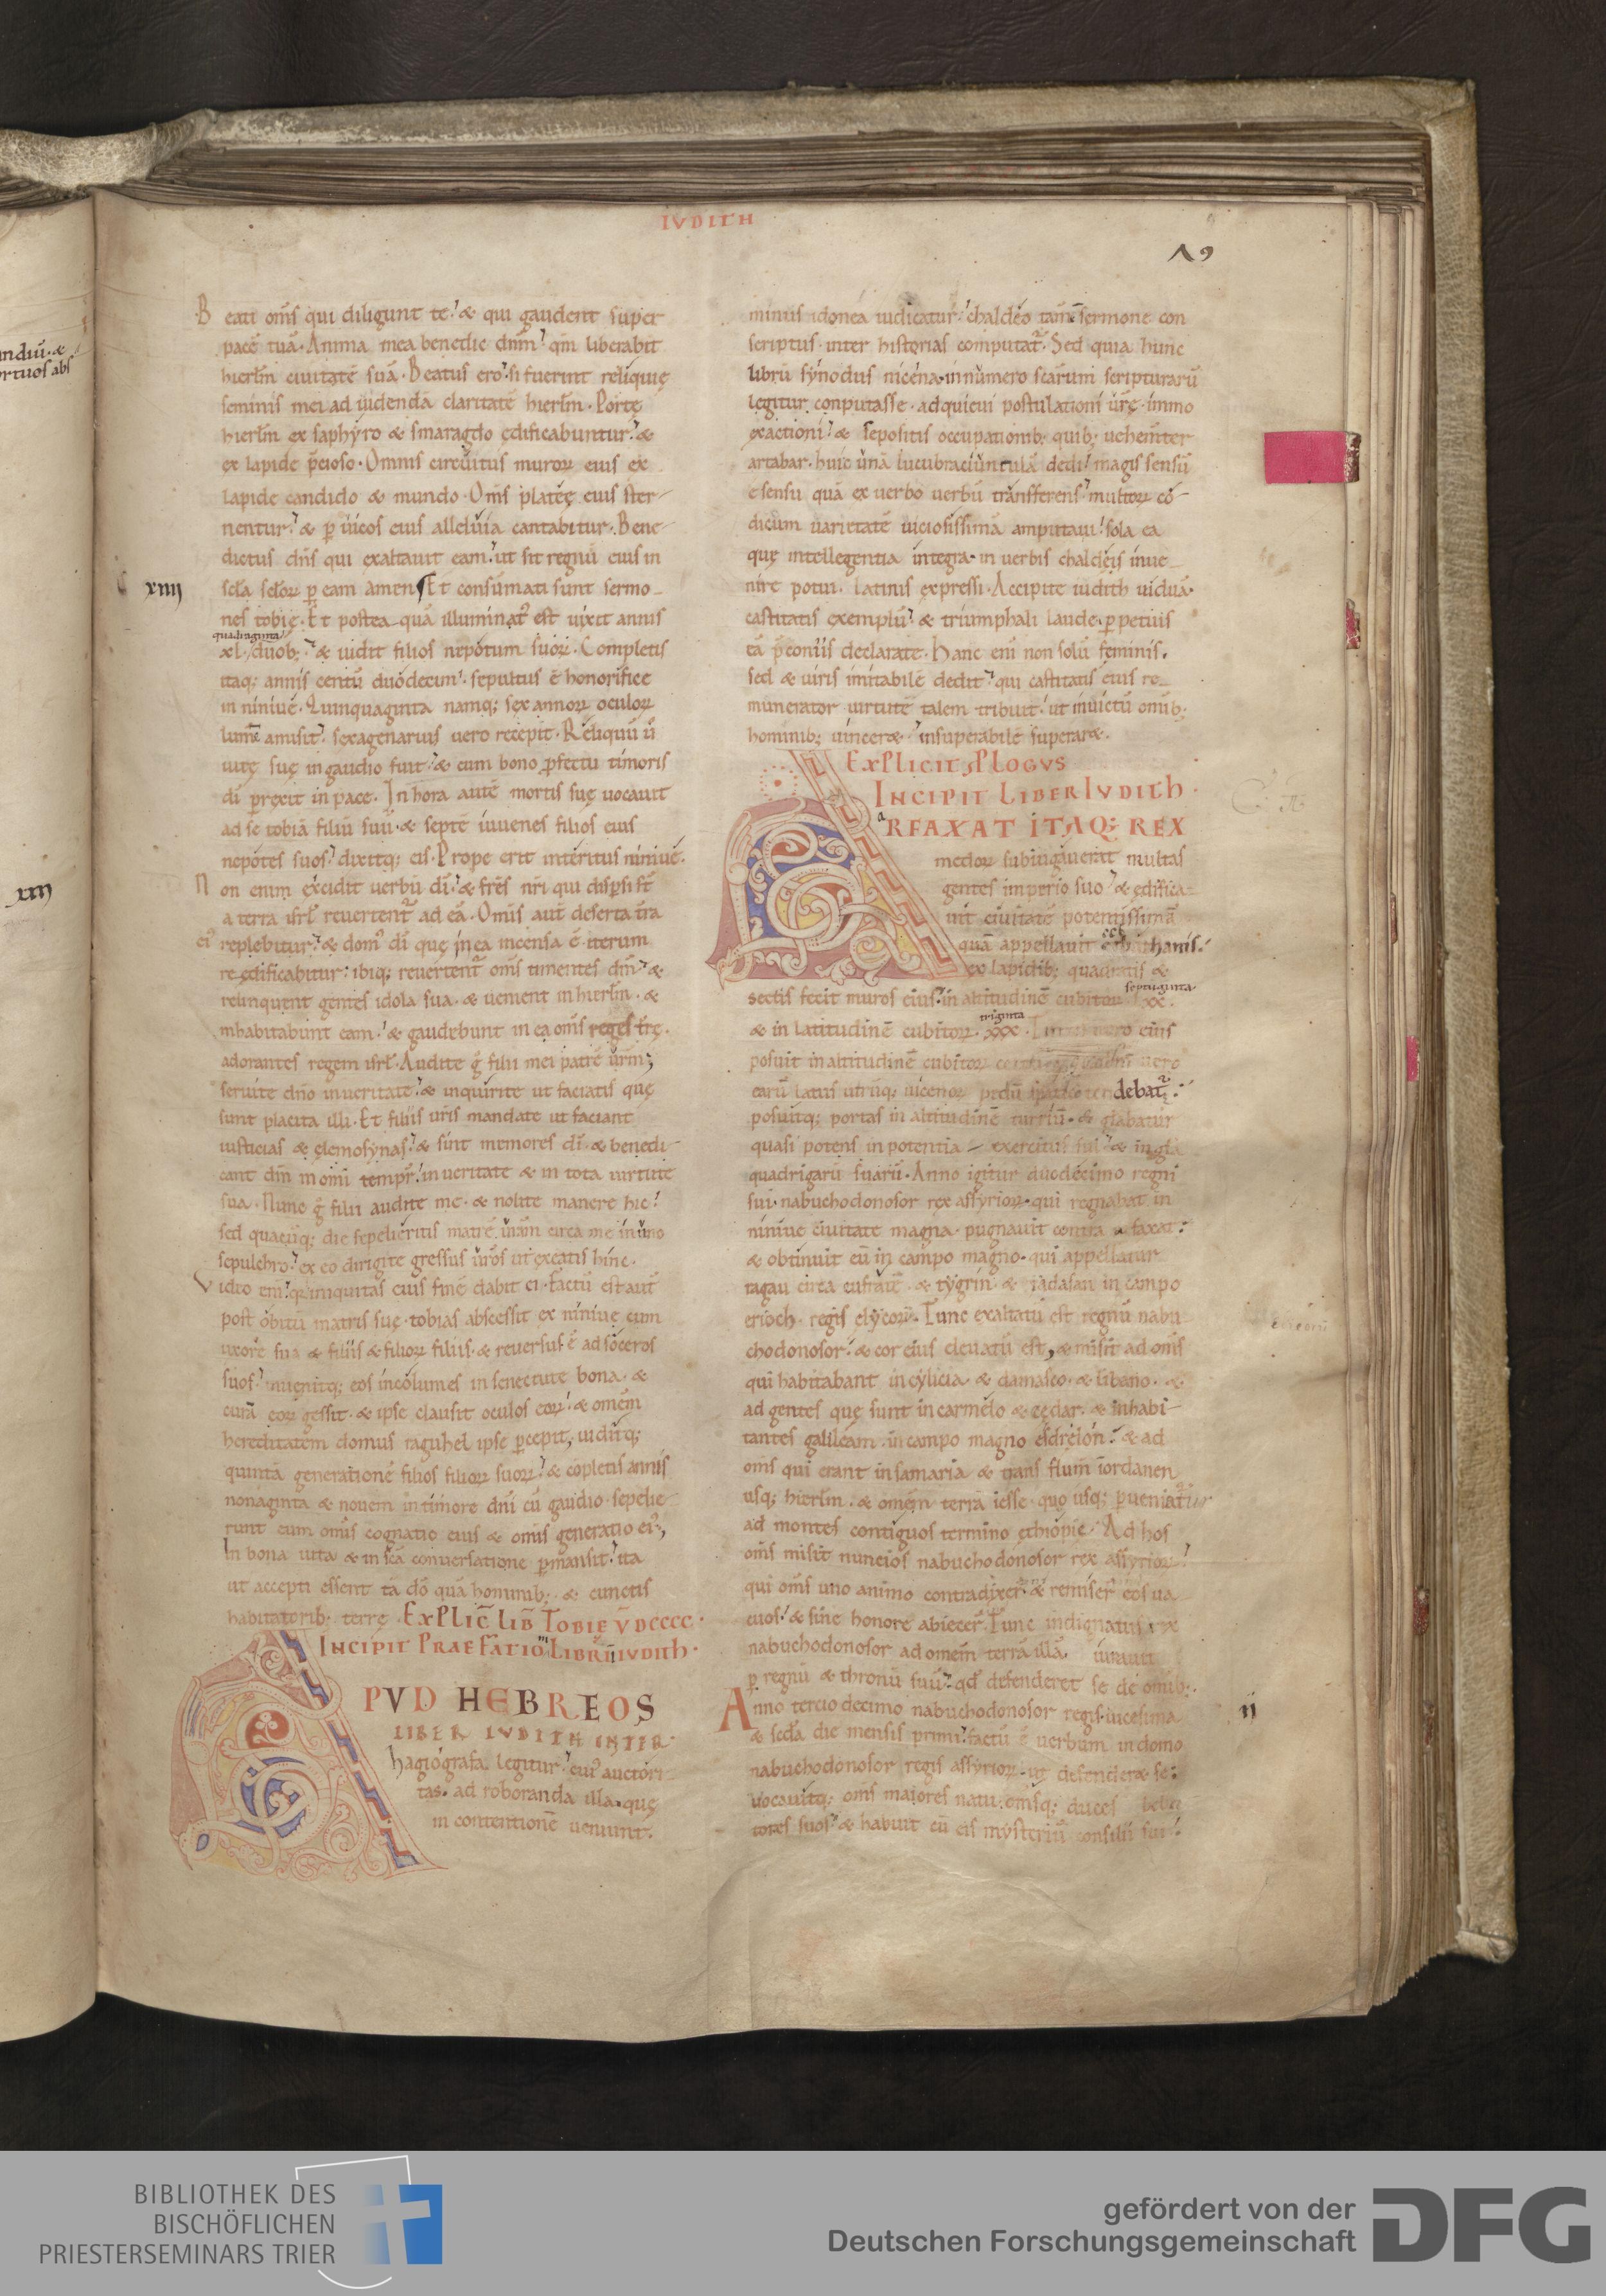 IVDITH
Λ9
ndiu᷑. &
ortuos abs
xııı
Beati om̄s qui diligunt te. & qui gaudent super
pacē tuā. Anima mea benedic dn̄m. qm̄ liberabit
hierl̄m ciuitatē suā. Beatus ero. si fuerint reliquię
seminis mei ad uidendā claritatē hierl̄m. Portę
hierl̄m ex saphyro & smaragdo ędificabuntur. &
ex lapide p̄cioso. Omnis circuitus muroꝝ eius ex
lapide candido & mundo. Om̄s platęę eius ster-
nentur. & ꝑ uicos eius alleluia cantabitur. Bene-
dictus dn̄s qui exaltauit eam. ut sit regnū eius in
scl̄a scl̄oꝝ ꝑ eam amen. Et consūmati sunt sermo-
xıııı
nes tobię. Et postea quā illuminat᷑ est uixit annis
quadraginta
xl. duob; & uidit filios nepotum suoꝝ. Completis
itaq; annis centū duodecim. sepultus ē honorifice
in niniuē. Quinquaginta namq; sex annoꝝ oculoꝝ
lum̄ amisit. sexagenarius uero recepit. Reliquū ū
uitę suę in gaudio fuit. & cum bono ꝓfectu timoris
dī ꝑrexit in pace. In hora autē mortis suę uocauit
ad se tobiā filiū suū. & septē iuuenes filios eius
nepotes suos. dixitq; eis. Prope erit interitus niniuē.
Non enim excidit uerbū dī. & fr̄es nr̄i qui dispersi st̄
a terra isrl̄ reuertent᷑ ad eā. Omīs aut̄ deserta tr̄a
ei᷒ replebitur. & dom᷒ dī quę in ea incensa ē iterum
reędificabitur. ibiq; reuertent᷑ om̄s timentes dn̄m. &
relinquent gentes idola sua. & uenient in hierl̄m. &
inhabitabunt eam. & gaudebunt in ea om̄s reges tr̄ę.
adorantes regem isrl̄. Audite g̊ filii mei patrē ur̄m;
seruite dn̄o in ueritate. & inquirite ut faciatis quę
sunt placita illi. Et filiis ur̄is mandate ut faciant
iusticias & elemosynas. & sint memores dī. & benedi-
cant dn̄m in omi tempr̄. in ueritate & in tota uirtute
sua. Nunc g̊ filii audite me. & nolite manere hic.
sed quacūq; die sepelieritis matrē ur̄am circa me in uno
sepulchro. ex eo dirigite gressus ur̄os ut exeatis hinc.
Video eni. q iniquitas eius finē dabit ei. Factū est aut̄
post obitū matris suę. tobias abscessit ex niniue cum
uxore sua & filiis & filioꝝ filiis. & reuersus ē ad soceros
suos. inuenitq; eos incolumes in senectute bona. &
curā eoꝝ gessit. & ipse clausit oculos eoꝝ. & omēm
hereditatem domus raguhel ipse ꝑcepit, uiditq;
quintā generationē filios filioꝝ suoꝝ. & cōpletis annis
nonaginta & nouem in timore dn̄i cū gaudio sepelie-
runt eum om̄is cognatio eius & om̄is generatio ei᷒,
In bona uita & in scā conuersatione ꝑmansit. ita
ut accepti essent tā dō quā hominib; & cunctis
habitatorib; terrę. Explic̄ Lib̄ Tobie v̄ DCCCC.
Incipit Praefatio Libri Iudith.
PVD HEBREOS
LIBER IVDITH INTER
hagiografa legitur. cui᷒ auctori-
tas. ad roboranda illa. quę
in contentionē ueniunt.
minus idonea iudicatur. chaldeo tam̄ sermone con
scriptus. inter historias computat᷑. Sed quia hunc
librū synodus nicena. in numero scārum scripturarū
legitur conputasse. adquieui postulationi ur̄ę. immo
exactioni. & sepositis occupationib; quib; uehem̄ter
artabar. huic unā lucubraciunculā dedi. magis sensū
e sensu quā ex uerbo uerbū transferens. multoꝝ co-
dicum uarietatē uiciosissimā amputaui. sola ea
quę intellegentia integra. in uerbis chaldęis inue-
nire potui. latinis expressi. Accipite iudith uiduā.
castitatis exemplū. & triumphali laude. ꝑpetuis
eā p̄coniis declarate. Hanc eni non solū feminis.
sed & uiris imitabilē dedit. qui castitatis eius re-
munerator. uirtutē talem tribuit. ut inuictū omib;
hominib; uincer&. insuperabilē superar&.
Explicit Plogus
Incipit Liber Iudith.
aRFAXAT ITAQ; REX
medoꝝ subiugauerat multas
gentes imperio suo. & ędifica-
uit ciuitatē potentissimā
quā appellauit ecbathanis.
ex lapidib; quadratis &
septuginta.
sectis fecit muros eius. in altitudinē cubitoꝝ lxx.
triginta
& in latitudinē cubitoꝝ. xxx. Turres uero eius
posuit in altitudinē cubitoꝝ
earū latus utrūq; uicenoꝝ pedū spatio tendebat᷑.
posuitq; portas in altitudinē turriū. & glabatur
quasi potens in potentia exercitus sui. & in gl̄a
quadrigarū suarū. Anno igitur duodecimo regni
sui. nabuchodonosor rex assyrioꝝ. qui regnabat in
niniue ciuitate magna. pugnauit contra arfaxat.
& obtinuit eū in campo magno. qui appellatur
ragau circa eufratē. & tygrin. & iadasan in campo
erioch. regis elycoꝝ. Tunc exaltatū est regnū nabu-
chodonosor. & cor eius eleuatū est, & misit ad om̄s
qui habitabant in cylicia. & damasco. & libano. &
ad gentes quę sunt in carmelo & cędar. & inhabi-
tantes galileam. in campo magno esdrelon. & ad
om̄s qui erant in samaria & trans flum̄ iordanen
usq; hierl̄m. & omēm terrā iesse. quo usq; ꝑueniat᷑
ad montes contiguos termino ęthiopię. Ad hos
om̄s misit nuncios nabuchodonosor rex assyrioꝝ.
qui om̄s uno animo contradixer̄. & remiser̄ eos ua-
cuos. & sine honore abiecer̄. Tunc indignatus rex
nabuchodonosor ad omēm terrā illā. iurauit
ꝑ regnū & thronū suū. qd̄ defenderet se de omib;.
Anno tercio decimo nabuchodonosor regis. uicesima
ıı
& secd̄a die mensis primi. factū ē uerbum in domo
nabuchodonosor regis assyrioꝝ. ut defender& se.
uocauitq; om̄s maiores natu. om̄sq; duces bella
tores suos. & habuit cū eis mysteriū consilii sui.
BIBLIOTHEK DES
BISCHÖFLICHEN
PRIESTERSEMINARS TRIER
gefördert von der
Deutschen Forschungsgemeinschaft
DFG